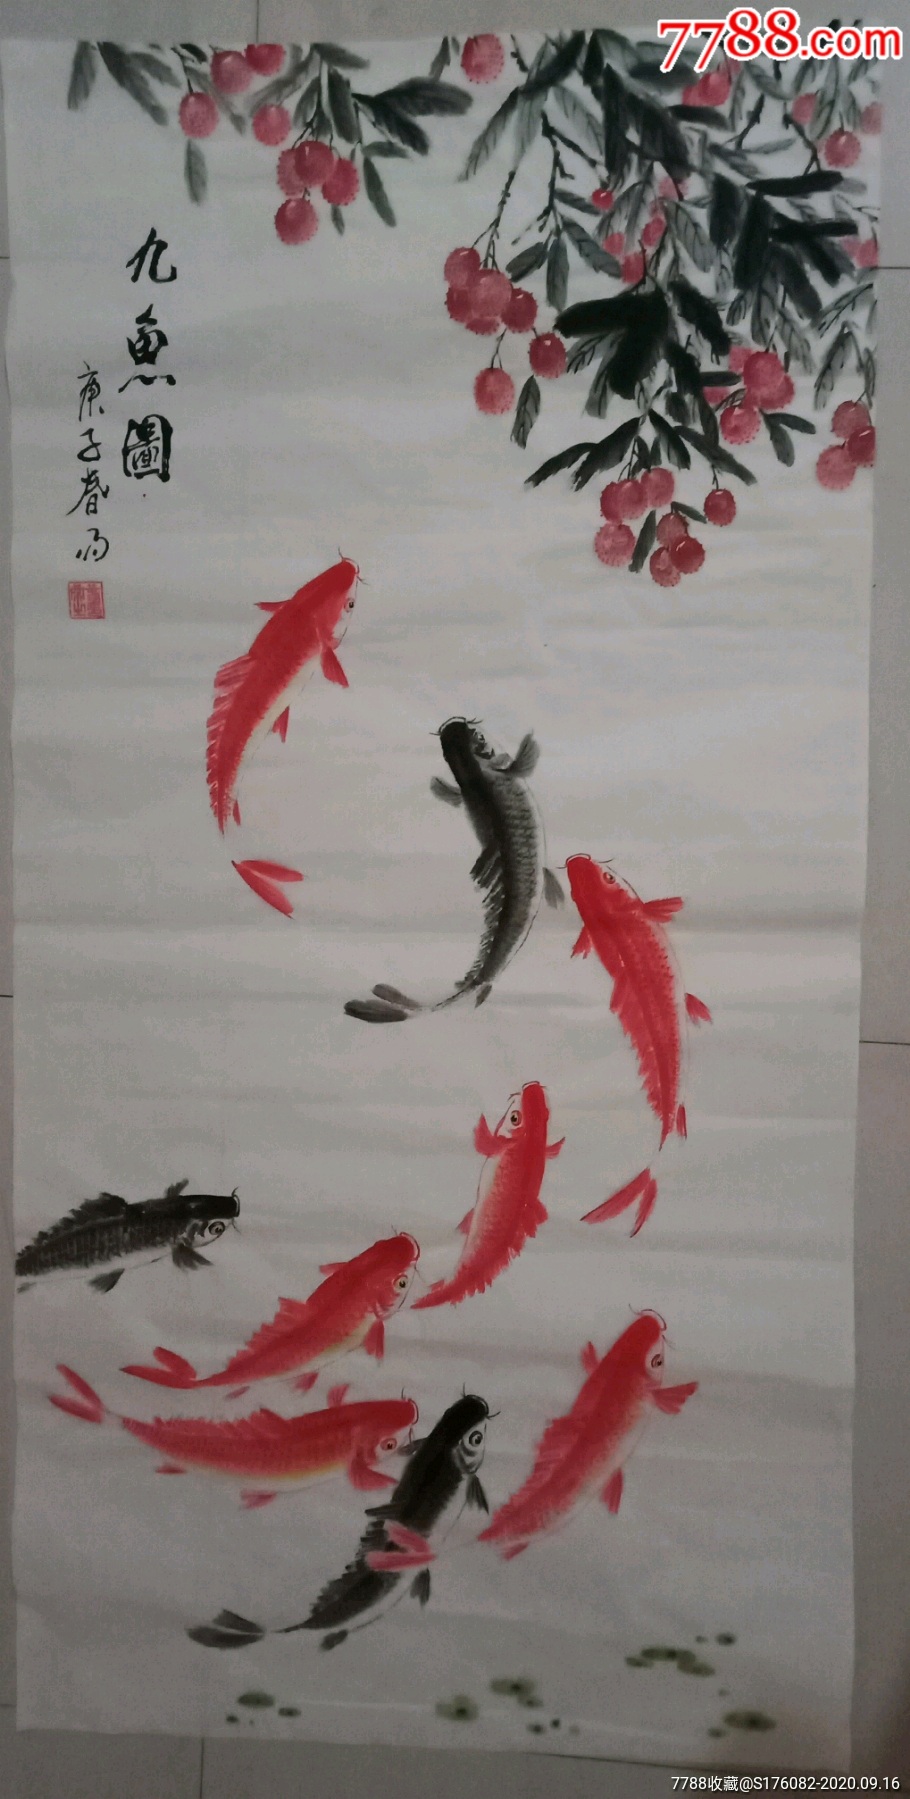 7788.com
九鱼圖
庚子春
7788收藏@S176082-2020.09.16